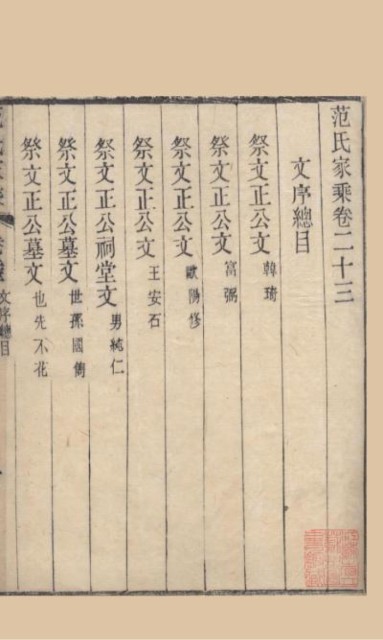 范氏家乘卷二十三
文序總目
祭文正公文 韓琦
祭文正公文 富弼
祭文正公文 歐陽修
祭文正公文 王安石
祭文正公祠堂文 男純仁
祭文正公墓文 世孫國雋
祭文正公墓文 也先不花
文序總目